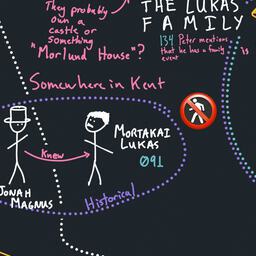 They probably
own a
castle or
something
"Morlund House"?
THE LUKAS
FAMILY
134 Peter mentions
that he has a family
event
is
Somewhere in Kent
MORTAKAI
LUKAS
091
Knew
JONAH
MAGNUS
Historical